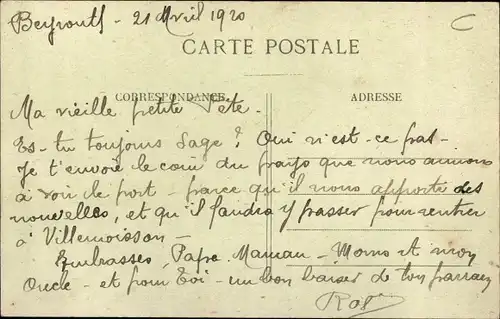 Beyrouth - 21 Avril 1920
C
CARTE POSTALE
CORRESPONDANCE
ADRESSE
Ma vieille petite Tête.
Es-tu toujours sage? Oui n'est-ce pas-
Je t'envoie le coin du pays que nous aimons
à voir le port - parce qu'il nous apporte des
nouvelles, et qu'il faudra y passer pour rentrer
à Villemoisson -
Embrasses Papa, Maman - Momo et mon
Oncle - et pour toi - un bon baiser de ton parrain